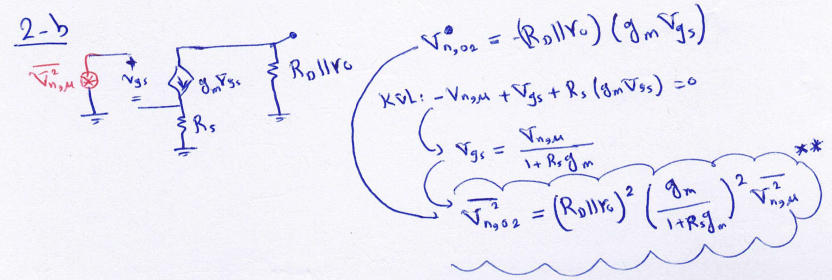 2-b
V̅²n,M
+
Vgs
-
gmVgs
RS
RD||ro
Vn,o2 = -(RD||ro)(gmVgs)
KVL: -Vn,M + Vgs + RS(gmVgs) = 0
Vgs = Vn,M / 1+RSgm
**
V̅²n,o2 = (RD||ro)² (gm / 1+RSgm)² V̅²n,M